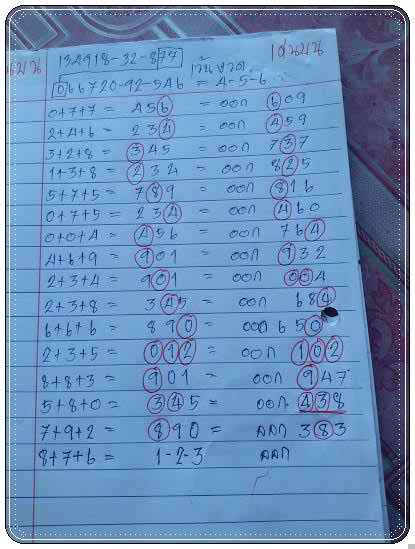 134918-32-877 เดินบน
066720-92-546 = 4-5-6
0+7+7 = 456 = ออก 609
2+4+6 = 234 = ออก 459
3+2+8 = 345 = ออก 737
1+3+8 = 234 = ออก 825
5+7+5 = 789 = ออก 816
0+7+5 = 234 = ออก 460
0+0+4 = 456 = ออก 764
4+6+9 = 901 = ออก 932
2+3+4 = 901 = ออก 004
2+3+8 = 345 = ออก 684
6+6+6 = 890 = ออก 650
2+3+5 = 012 = ออก 102
8+8+3 = 901 = ออก 947
5+8+0 = 345 = ออก 438
7+9+2 = 890 = ออก 383
8+7+6 = 1-2-3 ออก